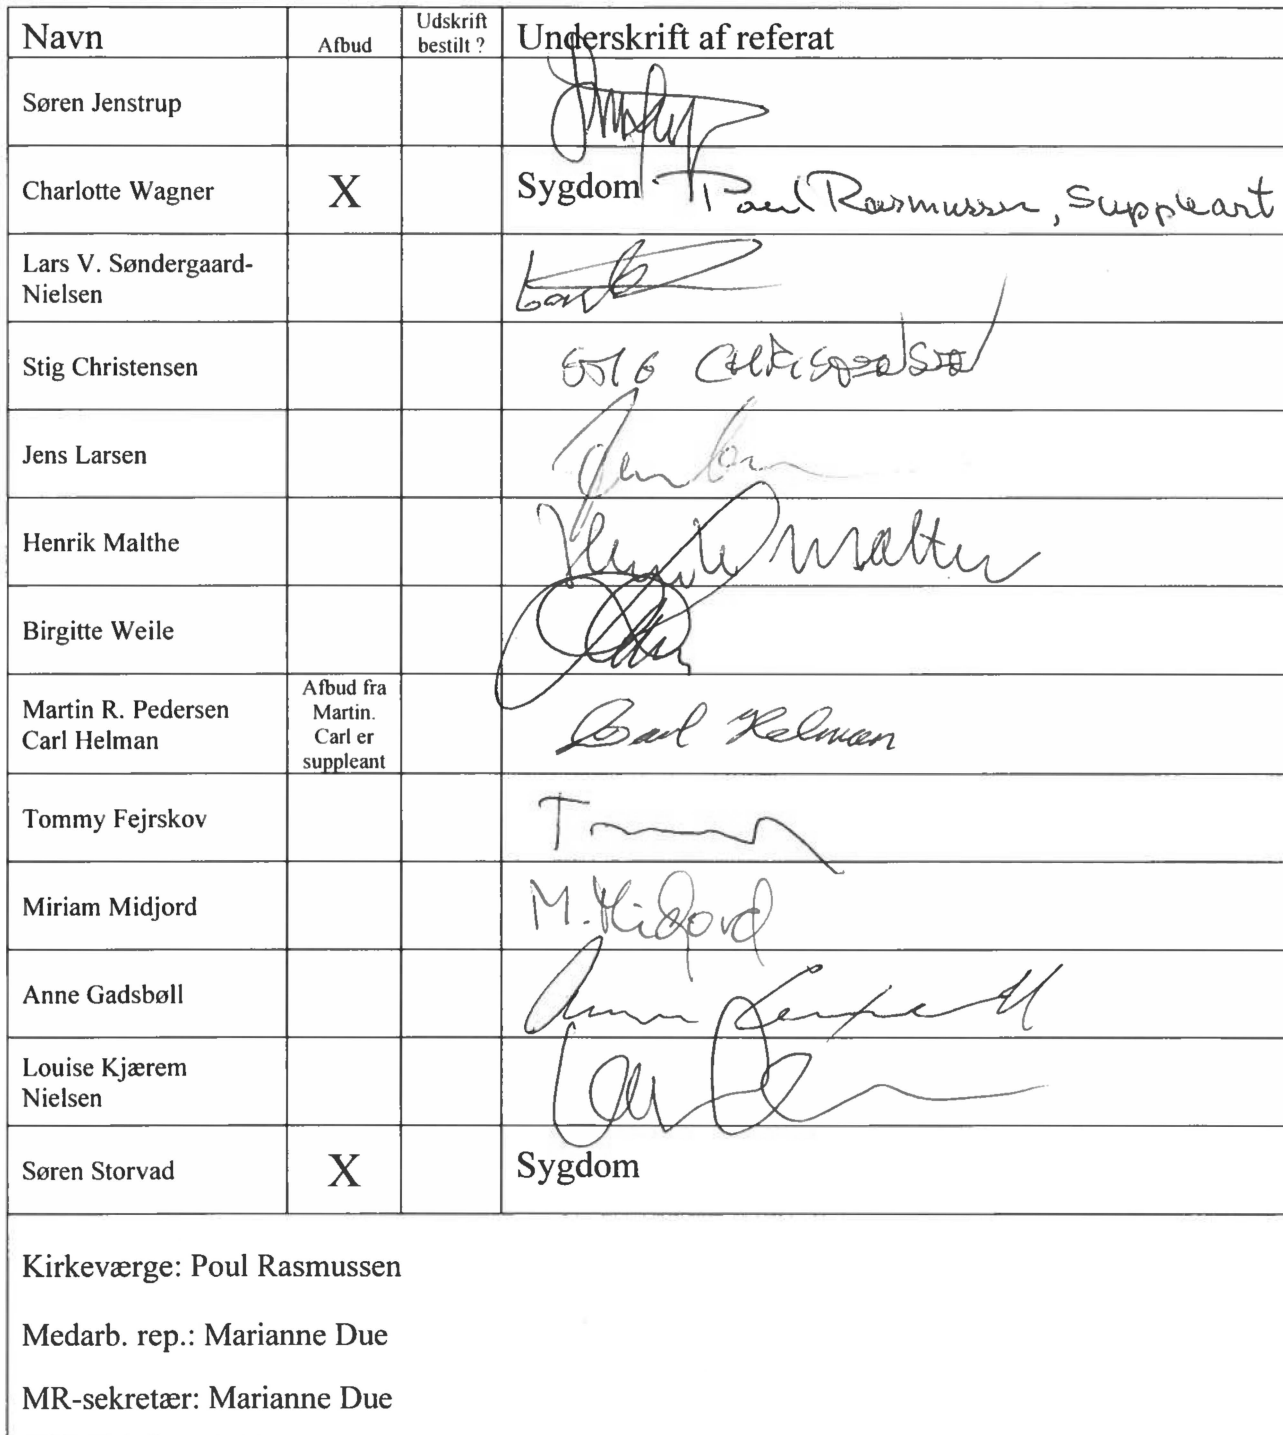 Navn Afbud Udskrift bestilt ? Underskrift af referat
Søren Jenstrup
Charlotte Wagner X Sygdom Poul Rasmussen, Suppleant
Lars V. Søndergaard-
Nielsen
Stig Christensen Stig Christensen
Jens Larsen
Henrik Malthe Henrik Malthe
Birgitte Weile
Martin R. Pedersen
Carl Helman
Afbud fra
Martin.
Carl er
suppleant
Carl Helman
Tommy Fejrskov
Miriam Midjord M. Midjord
Anne Gadsbøll
Louise Kjærem
Nielsen
Søren Storvad X Sygdom
Kirkeværge: Poul Rasmussen
Medarb. rep.: Marianne Due
MR-sekretær: Marianne Due